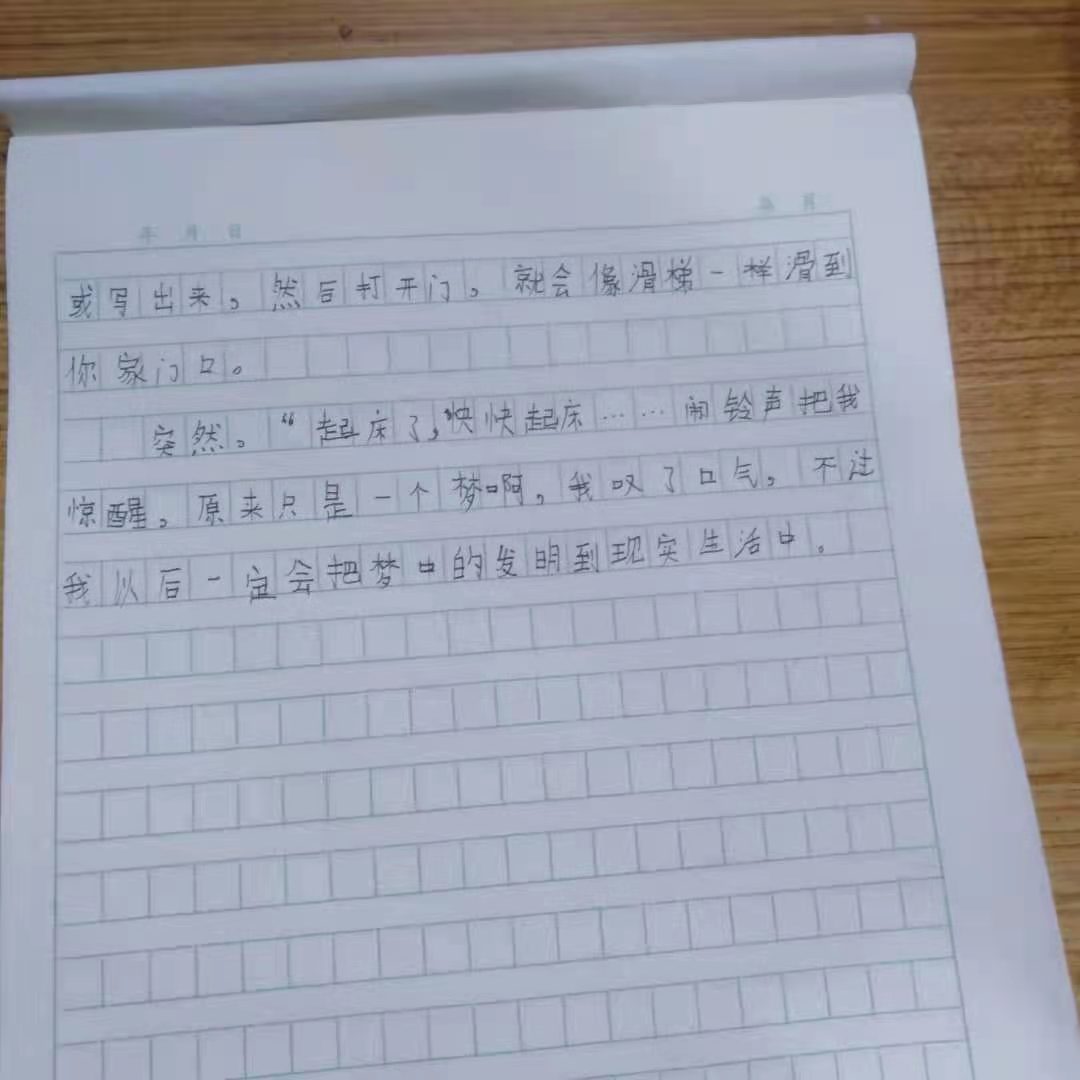 年 月 日
或写出来。然后打开门。就会像滑梯一样滑到
你家门口。
突然。“起床了,快快起床……闹铃声把我
惊醒。原来只是一个梦啊,我叹了口气,不过
我以后一定会把梦中的发明到现实生活中。